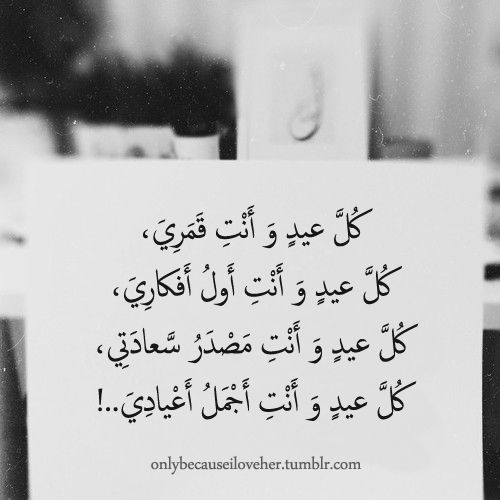 كُلَّ عيدٍ وَ أَنْتِ قَمَرِيَ،
كُلَّ عيدٍ وَ أَنْتِ أَولُ أَفكارِيَ،
كُلَّ عيدٍ وَ أَنْتِ مَصْدَرُ سَّعادَتِي،
كُلَّ عيدٍ وَ أَنْتِ أَجْمَلُ أَعْيادِيَ..!
onlybecauseiloveher.tumblr.com